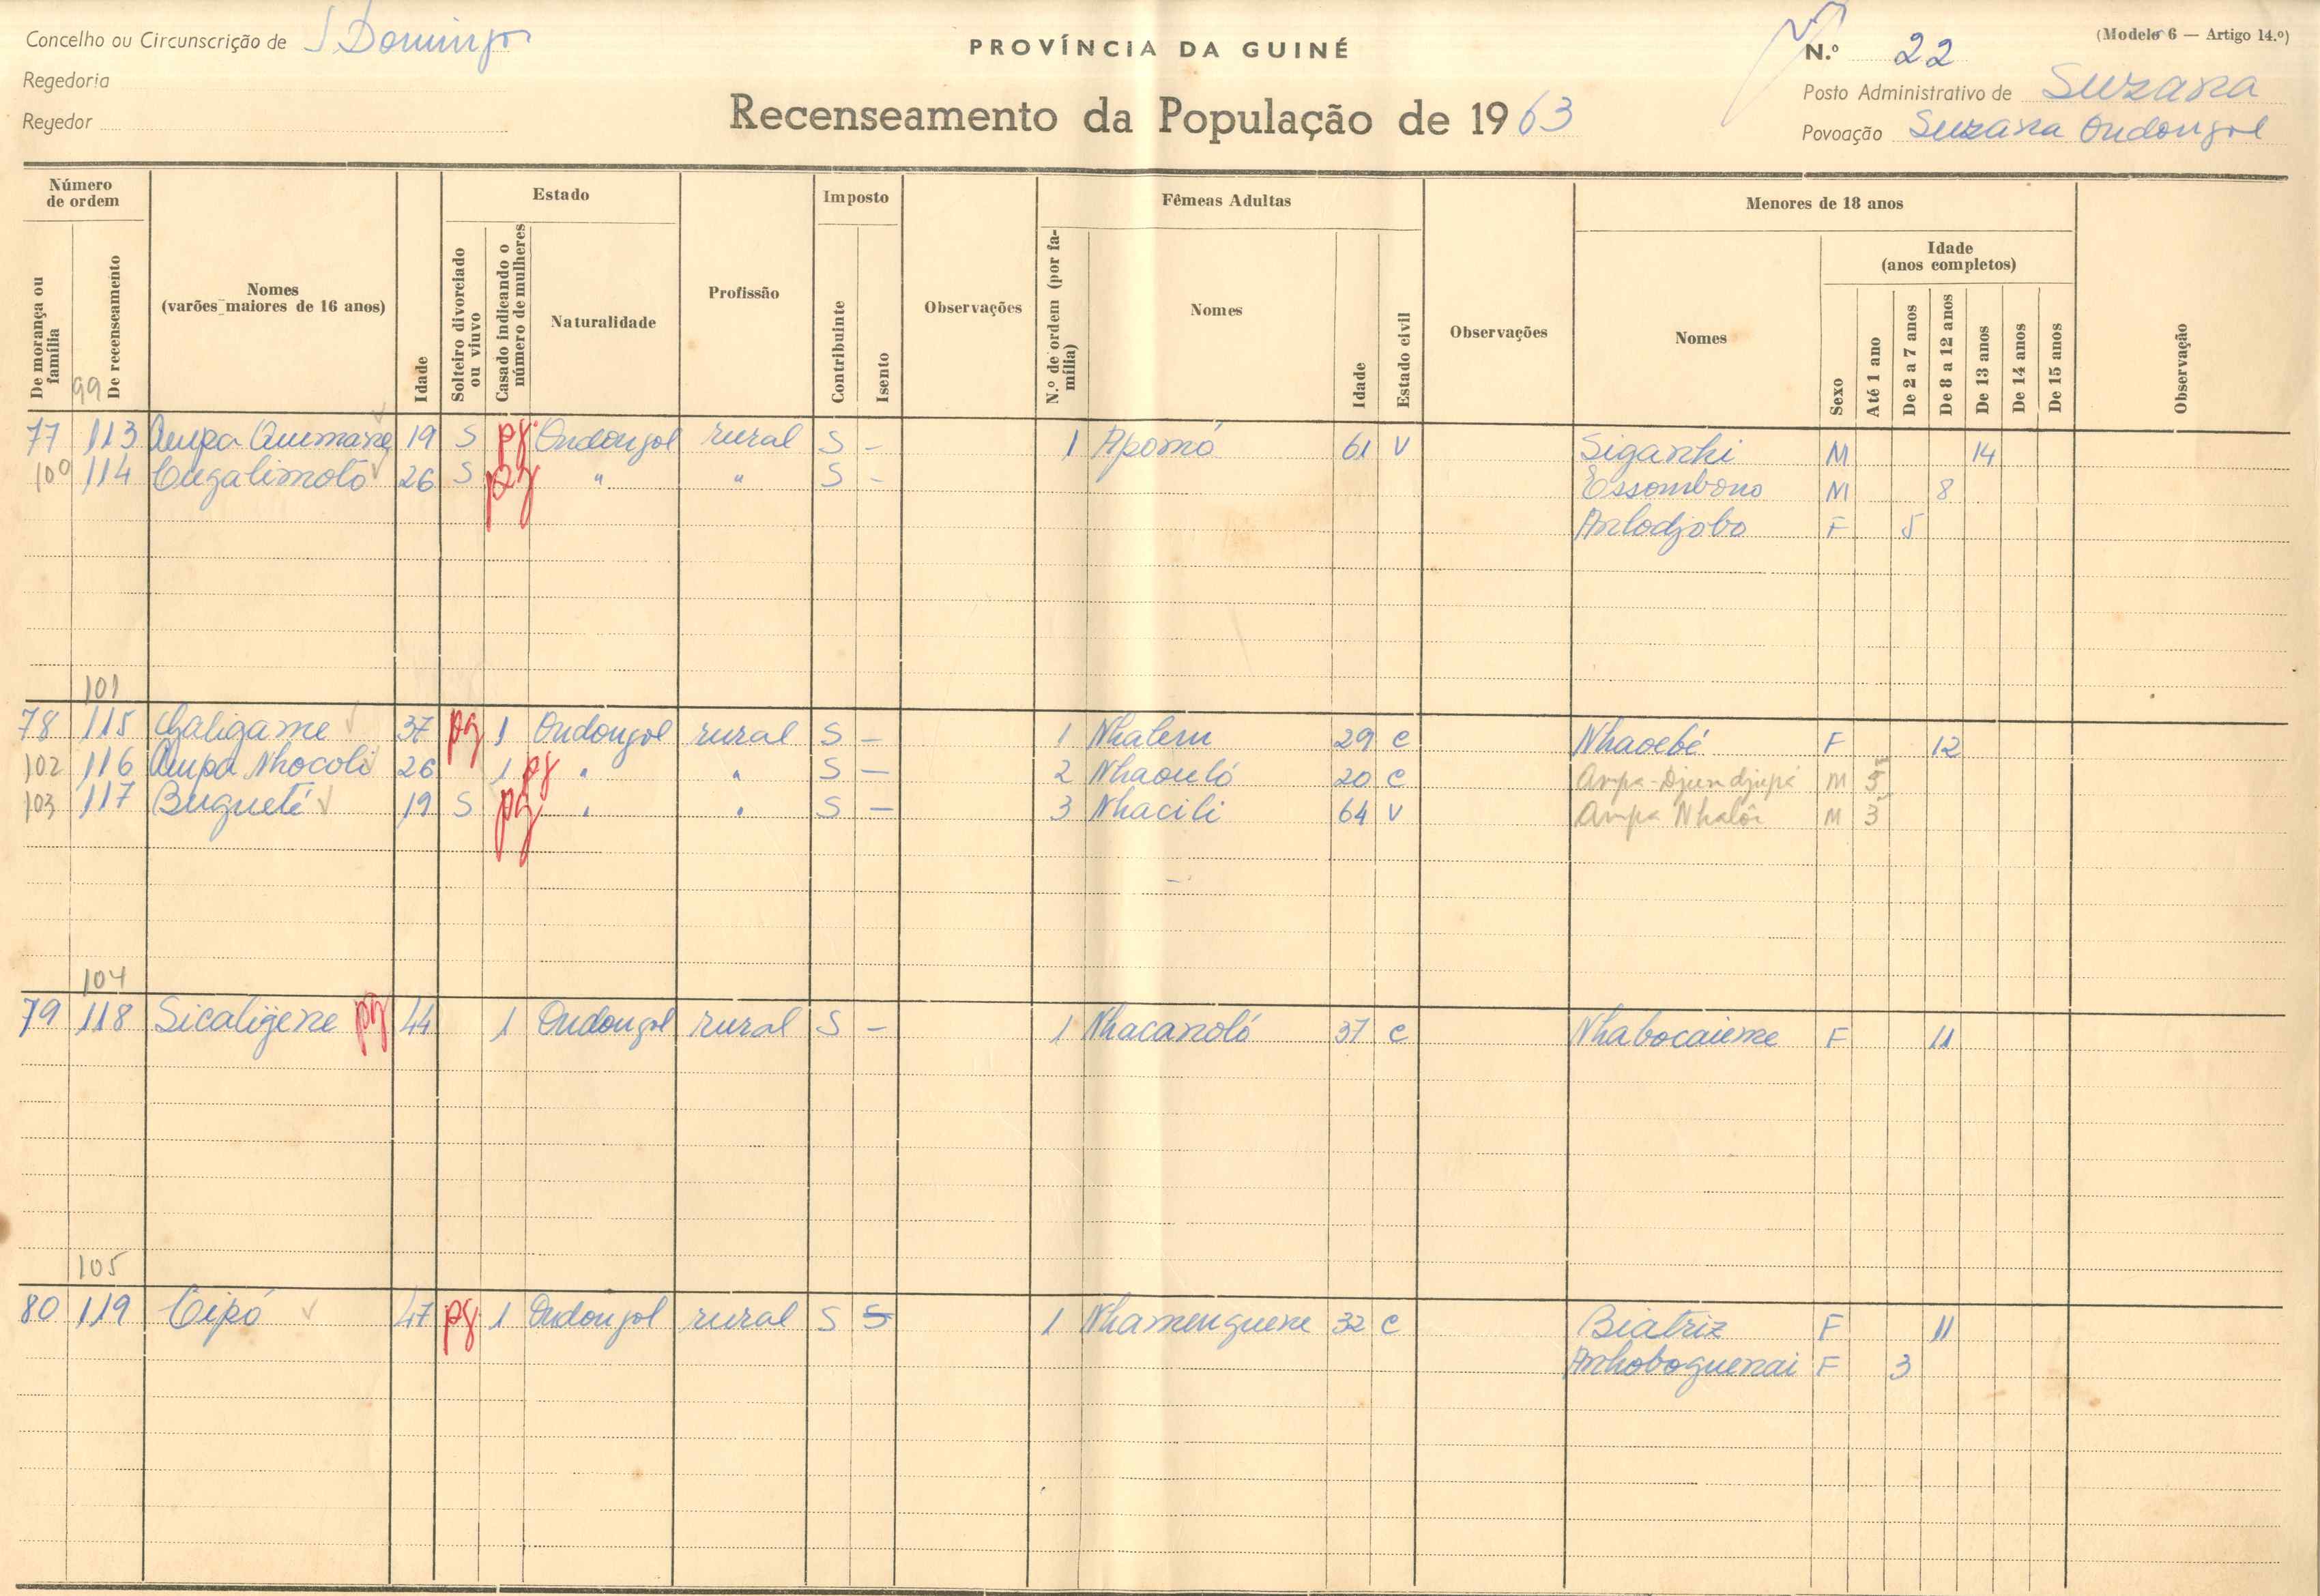 Concelho ou Circunscrição de S Domingos
Regedoria
Regedor
PROVÍNCIA DA GUINÉ
Recenseamento da População de 1963
(Modelo 6 — Artigo 14.º)
N.º 22
Posto Administrativo de Suzana
Povoação Suzana Ondongol
Número de ordem
De morança ou família
De recenseamento
Nomes (varões maiores de 16 anos)
Idade
Estado
Solteiro divorciado ou viuvo
Casado indicando o número de mulheres
Naturalidade
Profissão
Imposto
Contribuinte
Isento
Observações
Fêmeas Adultas
N.º de ordem (por família)
Nomes
Idade
Estado civil
Observações
Menores de 18 anos
Nomes
Sexo
Idade (anos completos)
Até 1 ano
De 2 a 7 anos
De 8 a 12 anos
De 13 anos
De 14 anos
De 15 anos
Observação
99
77 113 Ampa 19 S pg Ondongol rural S - 1 Apomó 61 V Siganhi M 14
100 114 26 S pg " " S - Essombono M 8
Anlodjobo F 5
101
78 115 Galigame 37 pg 1 Ondongol rural S - 1 Nhalem 29 C Nhaoebé F 12
102 116 Ampa Nhocoli 26 1 pg " " S - 2 Nhaouló 20 C Ampa-Djundjupá M 5
103 117 Bugueté 19 S pg " " S - 3 Nhacili 64 V Ampa Nhalôi M 3
104
79 118 Sicaligene pg 44 1 Ondongol rural S - 1 Nhacanoló 37 C Nhabocaieme F 11
105
80 119 Cipó 47 pg 1 Ondongol rural S S 1 Nhamenguene 32 C Biatriz F 11
Anhoboguenai F 3